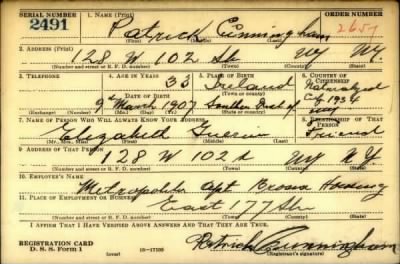 SERIAL NUMBER 1. NAME (Print) ORDER NUMBER
2491 Patrick Cunningham 2657
(First) (Middle) (Last)
2. ADDRESS (Print)
128 W 102 St NY NY.
(Number and street or R. F. D. number) (Town) (County) (State)
3. TELEPHONE 4. AGE IN YEARS 5. PLACE OF BIRTH 6. COUNTRY OF CITIZENSHIP
33 Ireland Naturalized
DATE OF BIRTH (Town or county)
9th March 1907 1934
(Exchange) (Number) (Mo.) (Day) (Yr.) (State or country)
7. NAME OF PERSON WHO WILL ALWAYS KNOW YOUR ADDRESS 8. RELATIONSHIP OF THAT PERSON
Elizabeth Friend
(Mr., Mrs., Miss) (First) (Middle) (Last)
9. ADDRESS OF THAT PERSON
128 W 102 NY NY
(Number and street or R. F. D. number) (Town) (County) (State)
10. EMPLOYER'S NAME
Metropolitan Apt Bronx Housing
11. PLACE OF EMPLOYMENT OR BUSINESS
East 177 St
(Number and street or R. F. D. number) (Town) (County) (State)
I AFFIRM THAT I HAVE VERIFIED ABOVE ANSWERS AND THAT THEY ARE TRUE.
REGISTRATION CARD
D. S. S. Form 1 (over) 16-17105 Patrick Cunningham
(Registrant's signature)